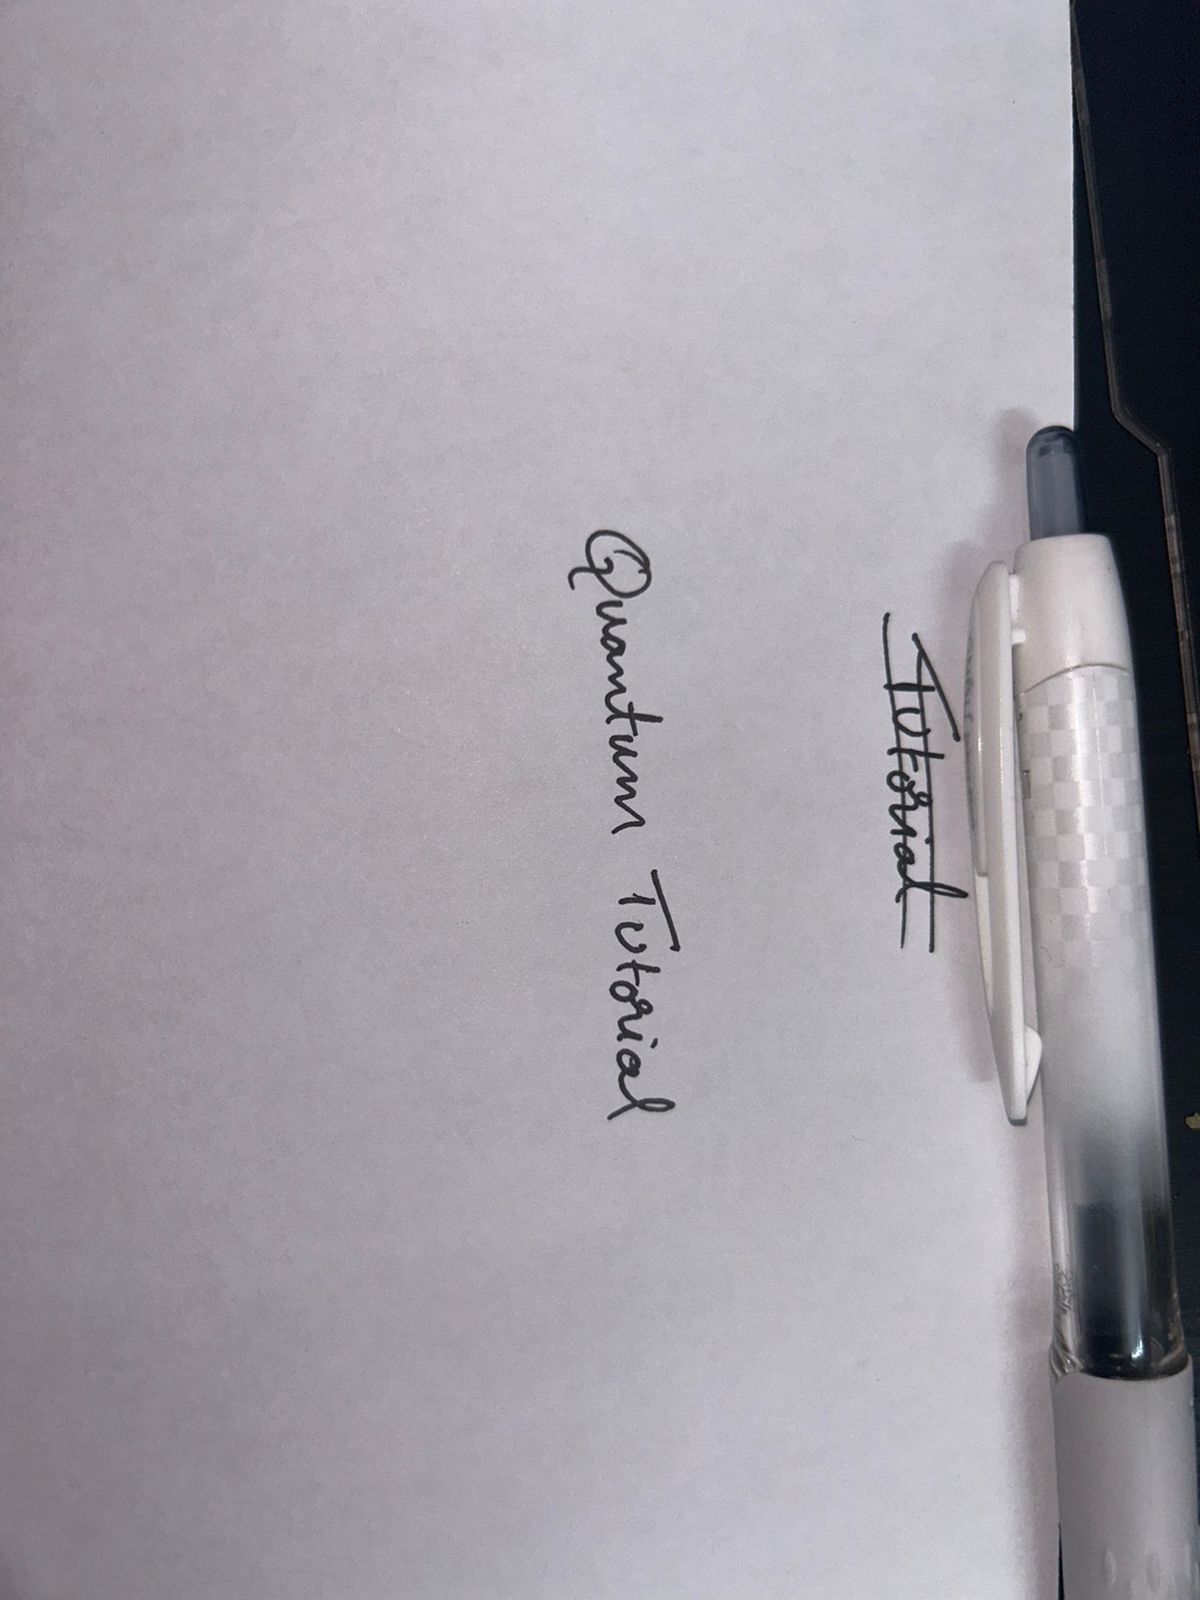 Tutorial
Quantum Tutorial